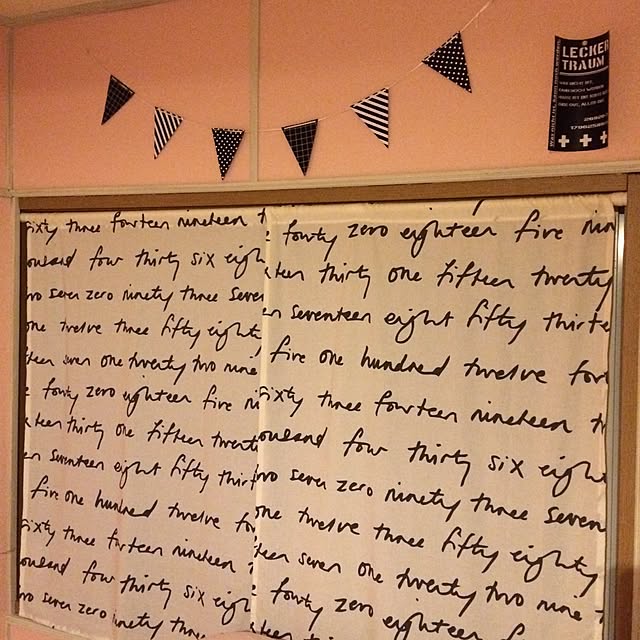 LECKER
TRAUM
sixty three fourteen nineteen
ousand four thirty six eigh
wo seven zero ninety three seven
one twelve three fifty eighty
teen seven one twenty two nine
fourty zero eighteen five ni
teen thirty one fifteen twent
en seventeen eight fifty thir
five one hundred twelve fo
sixty three fourteen nineteen
ousand four thirty six eigh
wo seven zero ninety three
fourty zero eighteen five nin
teen thirty one fifteen twenty
en seventeen eight fifty thirte
five one hundred twelve for
sixty three fourteen nineteen t
ousand four thirty six eigh
wo seven zero ninety three seven
one twelve three fifty eighty
teen seven one twenty two nine
fourty zero eighteen f